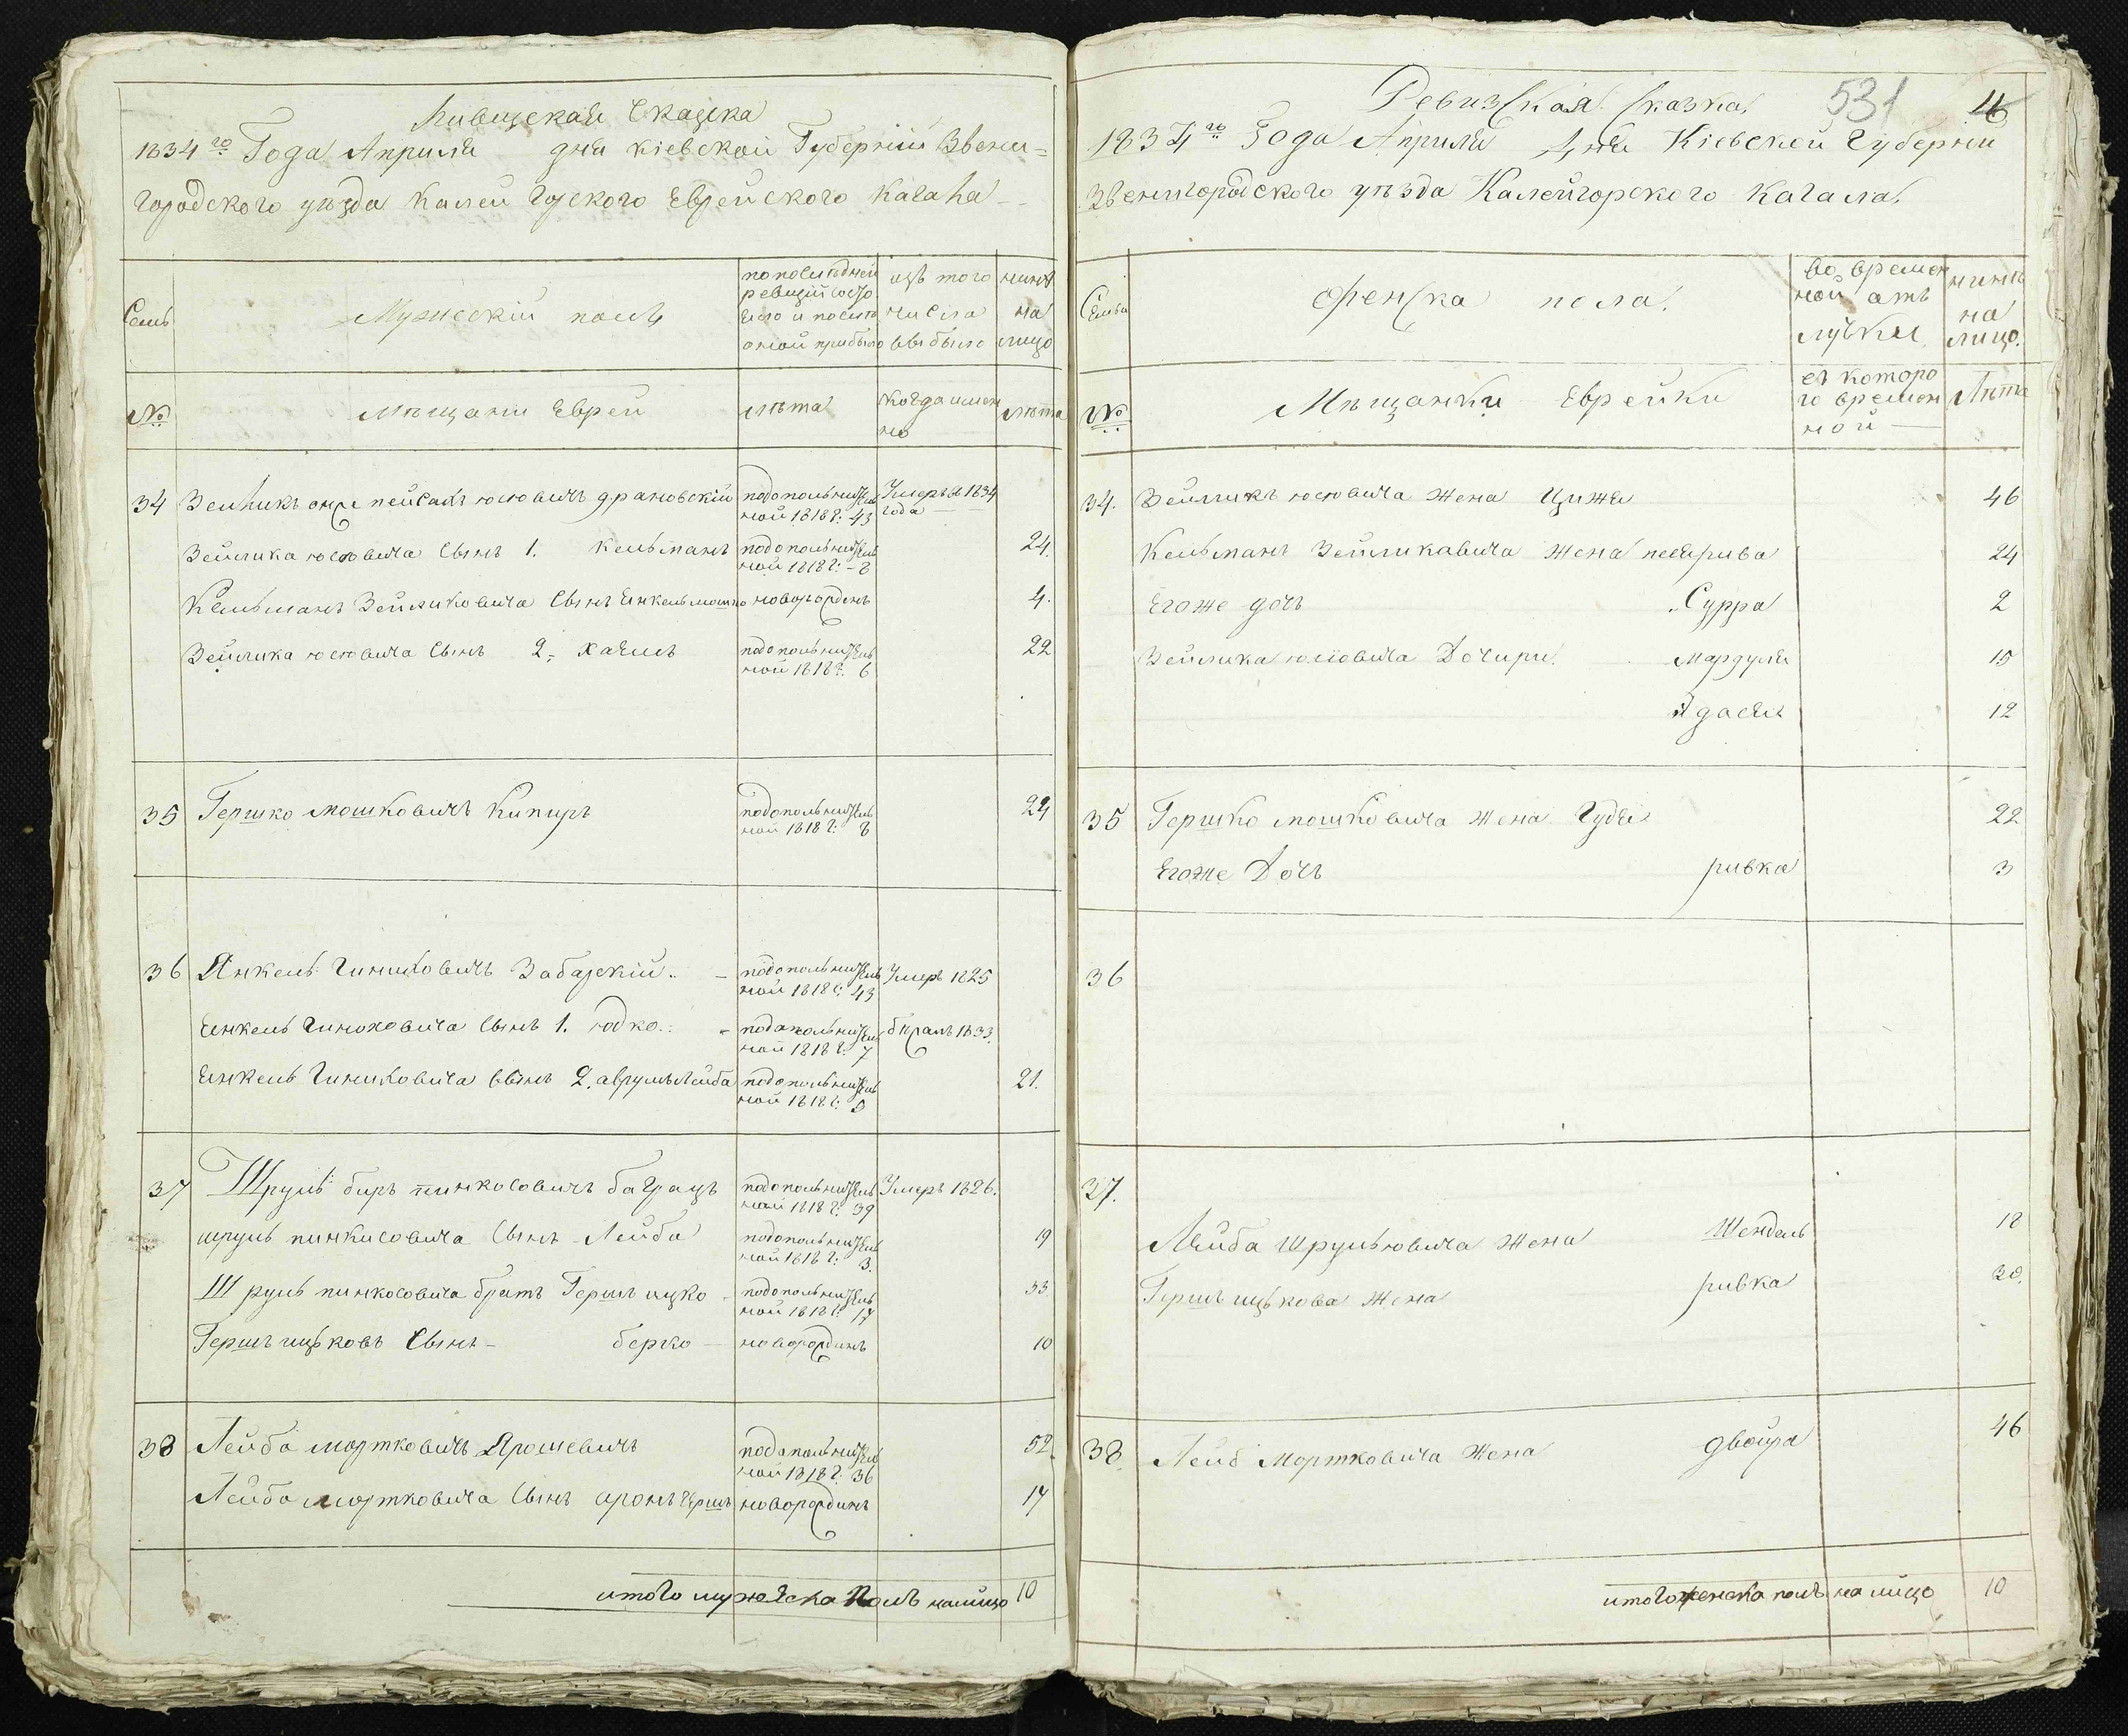 Ривизская Сказка
1834го Года Апреля дня Кіевской Губерніи Звени=
городского уезда Калей Горского Еврейского Кагала
Семь
Мужескій полъ
по последней ревизіи состояло и после оной прибыло
изъ того числа выбыло
нине на лицо
№
Мещани Евреи
лета
когда именно
лета
34 Зейликъ онже пейсахъ юсювичъ драновскій подополнительной 1818 г: 43 Умеръ въ 1834 года
Зейлика юсювича Сынъ 1. Кельманъ подополнительной 1818 г: 8 24.
Кельманъ Зейликовича Сынъ Енкель мошко новорожденъ 4.
Зейлика юсювича Сынъ 2, хаемъ подополнительной 1818 г: 6 22
35 Гершко мошковичъ Кипиръ подополнительной 1818 г: 8 24
36 Янкель Гиниховичъ Забарскій подополнительной 1818 г: 43 Умеръ 1825
Енкель Гиноховича Сынъ 1. юдко подополнительной 1818 г: 7 1833.
Енкель Гиниховича Сынъ 2. аврумъ Лейба подополнительной 1818 г: 21.
37 Шруль беръ пинкосовичъ подополнительной 1818 г: 39 Умеръ 1826.
шруль пинкисовича Сынъ Лейба подополнительной 1818 г: 3. 19
Шруль пинкосовича братъ Гершъ ицко подополнительной 1818 г: 17 33
Гершъ ицьковъ Сынъ берко новорожденъ 10
38 Лейба мортковичъ Ярошевичъ подополнительной 1818 г: 36 52
Лейба мортковича Сынъ аронъ Гершъ новорожденъ 17
итого мужеска полъ налицо 10
Ревизская Сказка
531
1834го Года Апреля Дня Кіевской Губерніи
Звенигородского уезда Калейгорского Кагала
Семьи
Женска пола
во временной отлучки
нине на лицо.
№
Мещанки Еврейки
съ которого временной
Лета
34. Зейликъ юсювича жена Ципя 46
Кельманъ Зейликавича жена песярива 24
Егоже дочъ Сурра 2
Зейлика юсювича Дочири Мардуля 15
12
35 Гершко мошковича жена Гудя 22
Егоже Дочъ ривка 3
36
37.
Лейба Шрульовича жена Шендель 18
Гершъ ицькова жена ривка 30.
38. Лейб Мортковича жена двойра 46
итого женска полъ на лицо 10